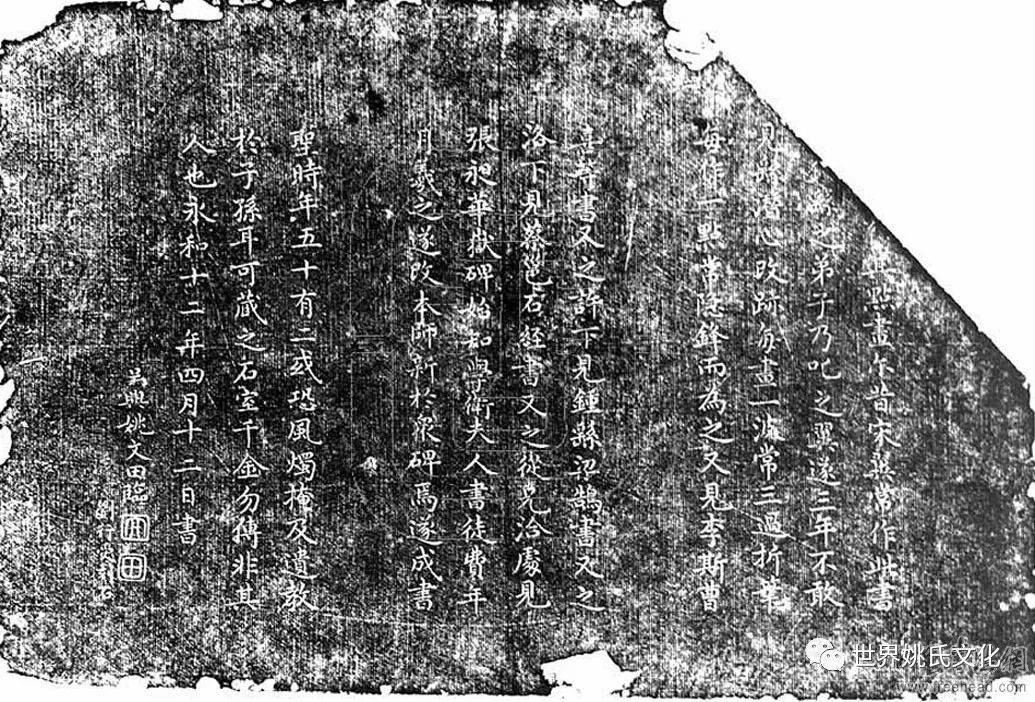 點畫尓昔宋翼常作此書
繇之弟子乃叱之翼遂三年不敢
見繇潛心改跡每畫一波常三過折筆
每作一點常隱鋒而為之又見李斯曹
喜等書又之許下見鍾繇梁鵠書又之
洛下見蔡邕石經書又之從兄洽處見
張昶華嶽碑始知學衛夫人書徒費年
月羲之遂改本師新於眾碑焉遂成書
聖時年五十有二或恐風燭掩及遺教
於子孫耳可藏之石室千金勿傳非其
人也永和十二年四月十二日書
吳興姚文田臨
世界姚氏文化